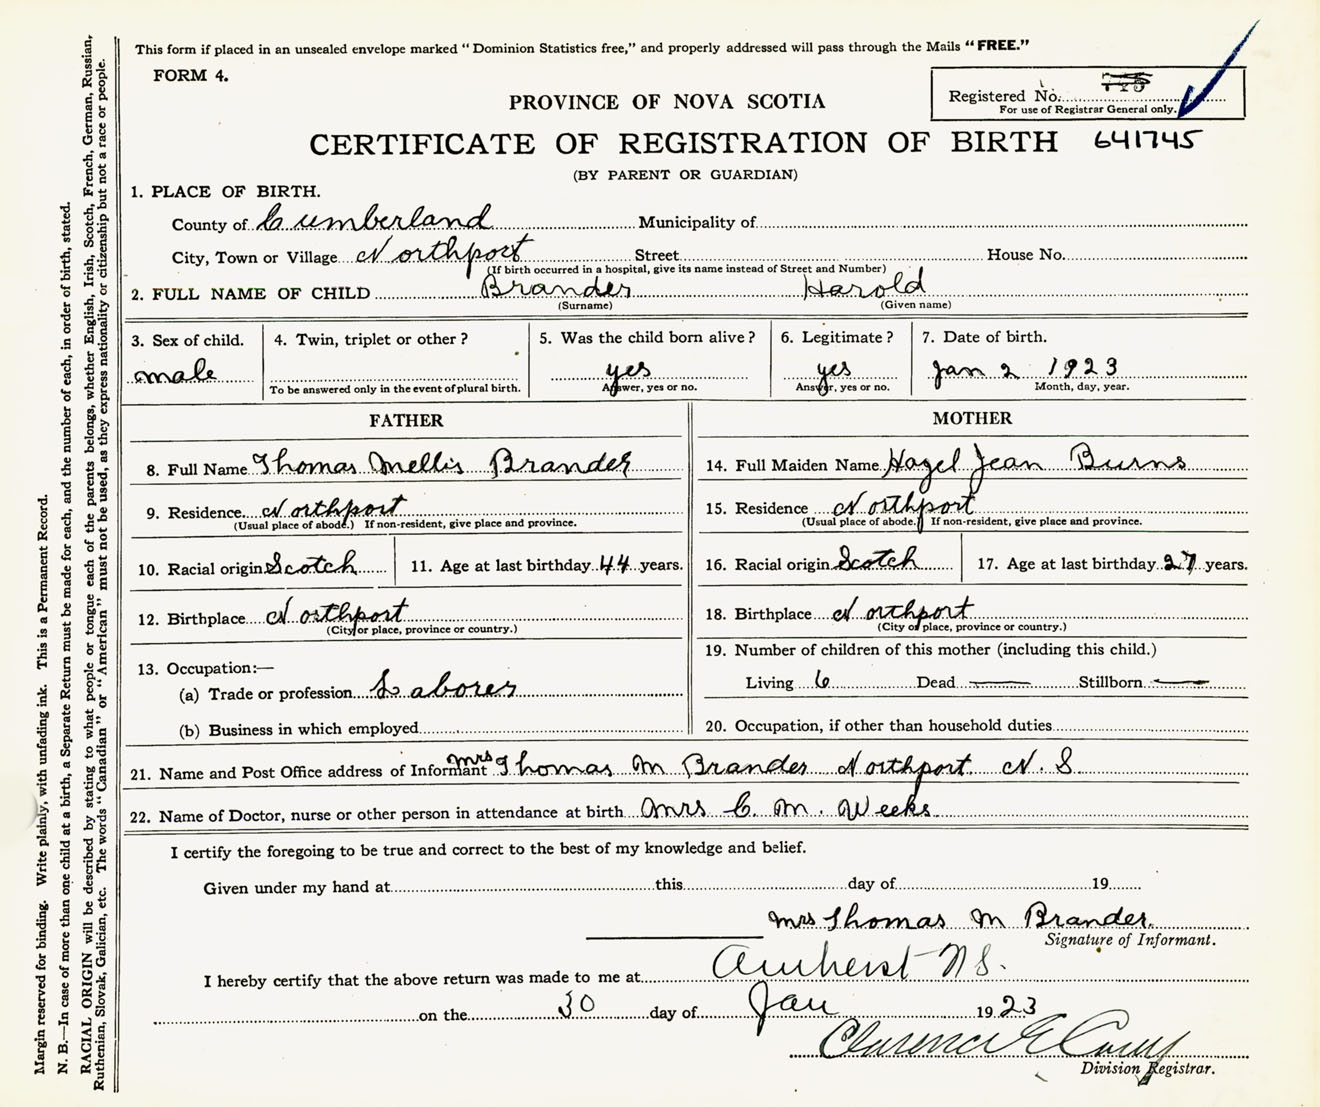 This form if placed in an unsealed envelope marked "Dominion Statistics free," and properly addressed will pass through the Mails "FREE."
FORM 4.
Registered No.
For use of Registrar General only.
PROVINCE OF NOVA SCOTIA
CERTIFICATE OF REGISTRATION OF BIRTH 641745
(BY PARENT OR GUARDIAN)
1. PLACE OF BIRTH.
County of Cumberland Municipality of
City, Town or Village Northport Street House No.
(If birth occurred in a hospital, give its name instead of Street and Number)
2. FULL NAME OF CHILD Brander Harold
(Surname) (Given name)
3. Sex of child. 4. Twin, triplet or other? 5. Was the child born alive? 6. Legitimate? 7. Date of birth.
male yes yes Jan 2 1923
To be answered only in the event of plural birth. Answer, yes or no. Answer, yes or no. Month, day, year.
FATHER
8. Full Name Thomas Mellis Brander
9. Residence Northport
(Usual place of abode.) If non-resident, give place and province.
10. Racial origin Scotch 11. Age at last birthday 44 years.
12. Birthplace Northport
(City or place, province or country.)
13. Occupation:—
(a) Trade or profession Laborer
(b) Business in which employed
MOTHER
14. Full Maiden Name Hazel Jean Burns
15. Residence Northport
(Usual place of abode.) If non-resident, give place and province.
16. Racial origin Scotch 17. Age at last birthday 27 years.
18. Birthplace Northport
(City or place, province or country.)
19. Number of children of this mother (including this child.)
Living 6 Dead — Stillborn —
20. Occupation, if other than household duties
21. Name and Post Office address of Informant Mrs Thomas M Brander Northport. N. S
22. Name of Doctor, nurse or other person in attendance at birth Mrs C. M. Weeks
I certify the foregoing to be true and correct to the best of my knowledge and belief.
Given under my hand at this day of 19
Mrs Thomas M Brander.
Signature of Informant.
I hereby certify that the above return was made to me at Amherst N S.
on the 30 day of Jan 1923
Clarence E
Division Registrar.
Margin reserved for binding. Write plainly, with unfading ink. This is a Permanent Record.
N. B.—In case of more than one child at a birth, a Separate Return must be made for each, and the number of each, in order of birth, stated.
RACIAL ORIGIN will be described by stating to what people or tongue each of the parents belongs, whether English, Irish, Scotch, French, German, Russian,
Ruthenian, Slovak, Galician, etc. The words "Canadian" or "American" must not be used, as they express nationality or citizenship but not a race or people.